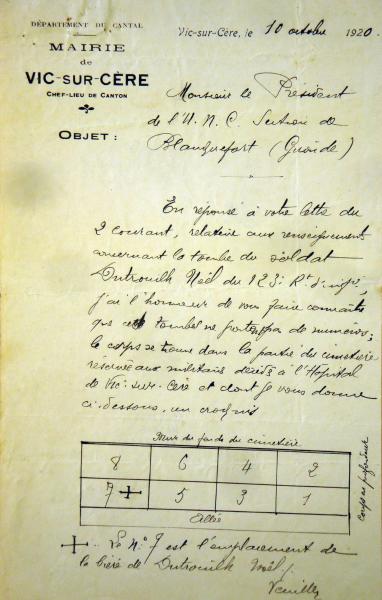 DÉPARTEMENT DU CANTAL
MAIRIE
de
VIC-SUR-CÈRE
CHEF-LIEU DE CANTON
OBJET :
Vic-sur-Cère, le 10 octobre 1920.
Monsieur le Président
de l'U. N. C. Section de
Blanquefort (Gironde)
En réponse à votre lettre du
2 courant, relative aux renseignements
concernant la tombe du soldat
Dutrouilh Noël du 123e Rt d'infie,
j'ai l'honneur de vous faire connaître
que ces tombes ne portent pas de numéros;
le corps se trouve dans la partie du cimetière
réservé aux militaires décédés à l'Hôpital
de Vic-sur-Cère et dont je vous donne
ci-dessous, un croquis
Mur du fond du cimetière
8 6 4 2
7 5 3 1
Allée
corps
Le N° 7 est l'emplacement de
la bière de Dutrouilh Noël.